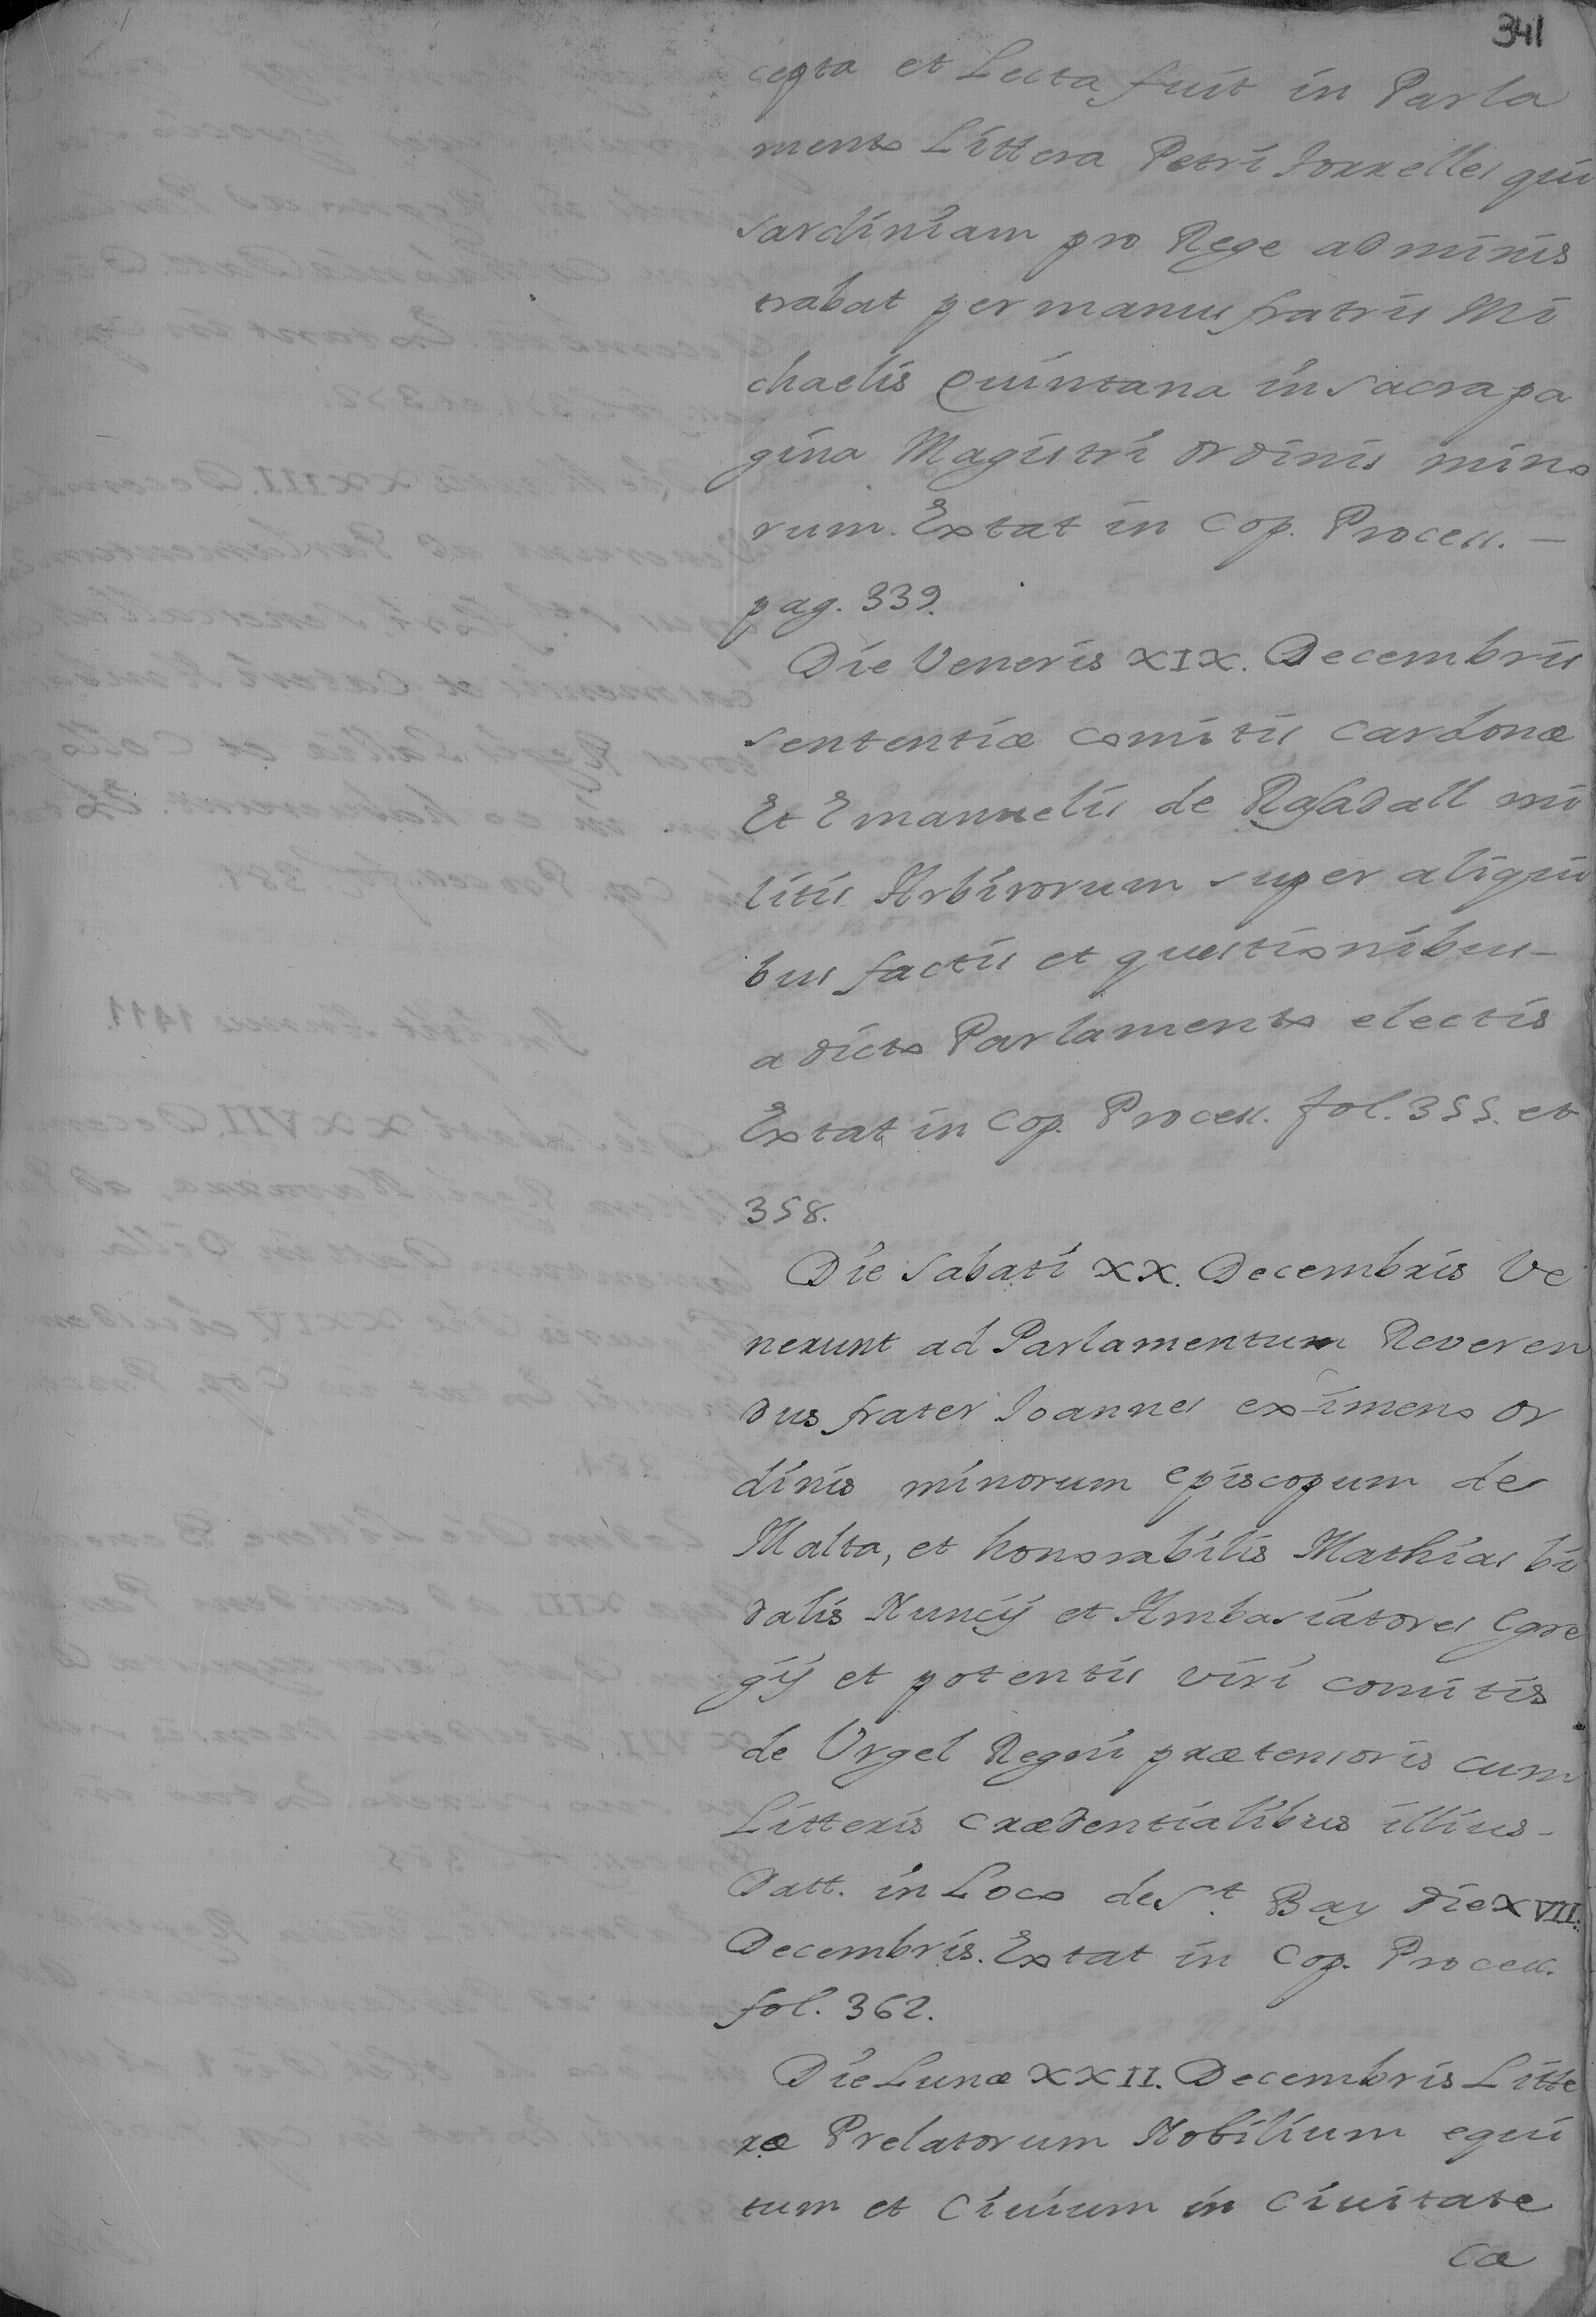 341
cepta et Lecta fuit in Parla
mento Littera Petri Torrelles qui
sardiniam pro Rege adminis
trabat per manus fratris Mi
chaelis Quintana in sacra pa
gina Magistri ordinis mino
rum. Extat in Cop. Process. —
pag. 339.
Die Veneris XIX. Decembris
sententiæ comitis Cardonæ
Et Emanuelis de Rajadall mi
litis Arbitrorum super aliqui
bus factis et questionibus –
a dicto Parlamento electis
Extat in Cop. Process. fol. 355. et
358.
Die Sabati XX. Decembris Ve
nerunt ad Parlamentum Reveren
dus frater Joannes eximeno or
dinis minorum episcopum de
Malta, et honorabilis Mathias bi
dalis Nuncij et Ambasiatores Egre
gij et potentis viri comitis
de Vrgel Regni prætensoris cum
Litteris crædentialibus illius –
Datt. in Loco de St. Bay die XVII.
Decembris. Extat in Cop. Process.
fol. 362.
Die Lunæ XXII. Decembris Litte
ræ Prelatorum Nobilium equi
tum et Ciuium in Ciuitate
Cæ